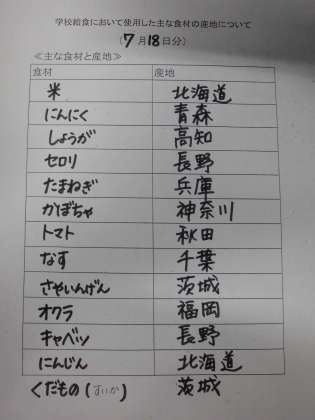 学校給食において使用した主な食材の産地について
(7月18日分)
≪主な食材と産地≫
食材 産地
米 北海道
にんにく 青森
しょうが 高知
セロリ 長野
たまねぎ 兵庫
かぼちゃ 神奈川
トマト 秋田
なす 千葉
さやいんげん 茨城
オクラ 福岡
キャベツ 長野
にんじん 北海道
くだもの(すいか) 茨城